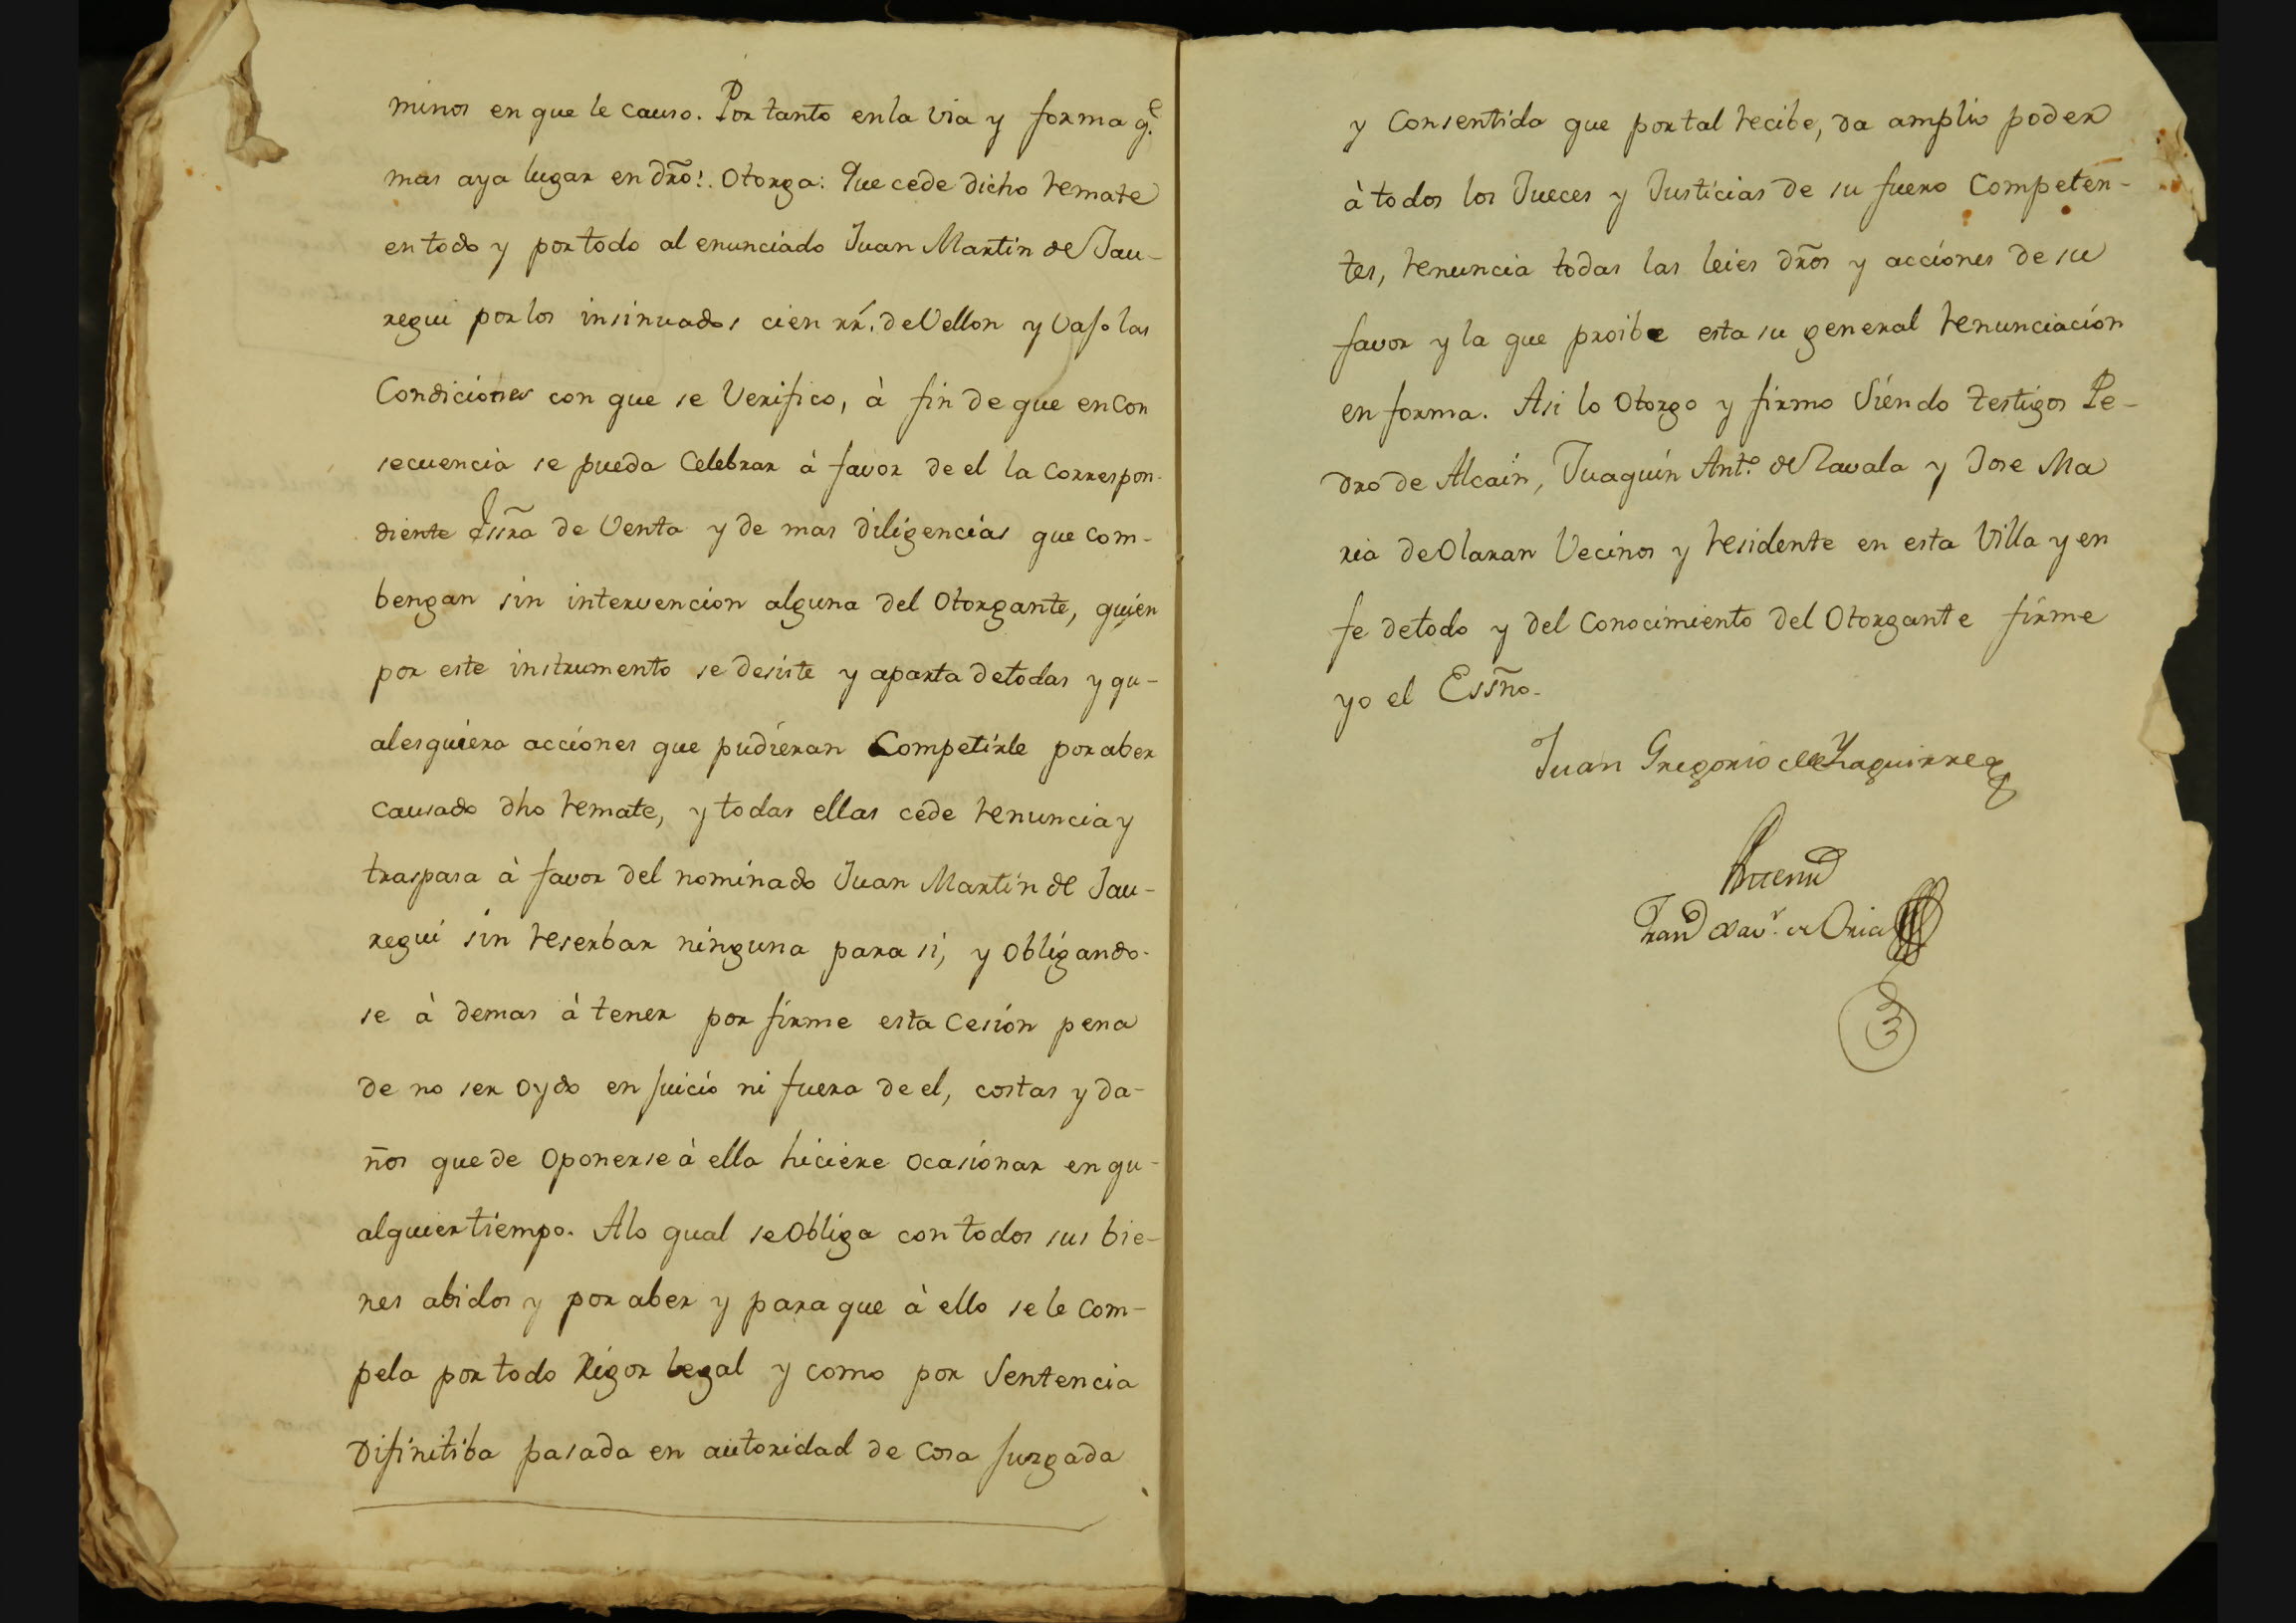 minos en que le causo. Por tanto en la via y forma q.e
mas aya lugar en dro!. Otorga: Que cede dicho remate
en todo y por todo al enunciado Juan Martin de Jau-
regui por los insinuados cien rr.s de Vellon y vajo las
Condiciones con que se Verifico, à fin de que en Con
secuencia se pueda Celebrar à favor de el la Correspon-
diente Essra de Venta y de mas diligencias que com-
bengan sin intervencion alguna del Otorgante, quien
por este instrumento se desiste y aparta de todas y qu-
alesquiera acciones que pudieran Competirle por aber
Causado dho remate, y todas ellas cede renuncia y
traspasa à favor del nominado Juan Martin de Jau-
regui sin reserbar ninguna para si, y obligando-
se à demas à tener por firme esta Cesion pena
de no ser oydo en juicio ni fuera de el, costas y da-
ños que de Oponerse à ella hiciere ocasionar en qu-
alquier tiempo. A lo qual se Obliga con todos sus bie-
nes abidos y por aber y para que à ello se le Com-
pela por todo Rigor legal y como por Sentencia
Difinitiba pasada en autoridad de Cosa Juzgada
y Consentida que por tal recibe, da amplio poder
à todos los Jueces y Justicias de su fuero Competen-
tes, renuncia todas las leies dros y acciones de su
favor y la que proibe esta su general renunciacion
en forma. Asi lo Otorgo y firmo Siendo testigos Pe-
dro de Alcain, Juaquin Ant.o de Zavala y Jose Ma
ria de Olaran Vecinos y residente en esta Villa y en
fe de todo y del Conocimiento del Otorgante firme
yo el Essño.
Juan Gregorio de Yzaguirre
Antemi
Fran.co Xav.r de Oria